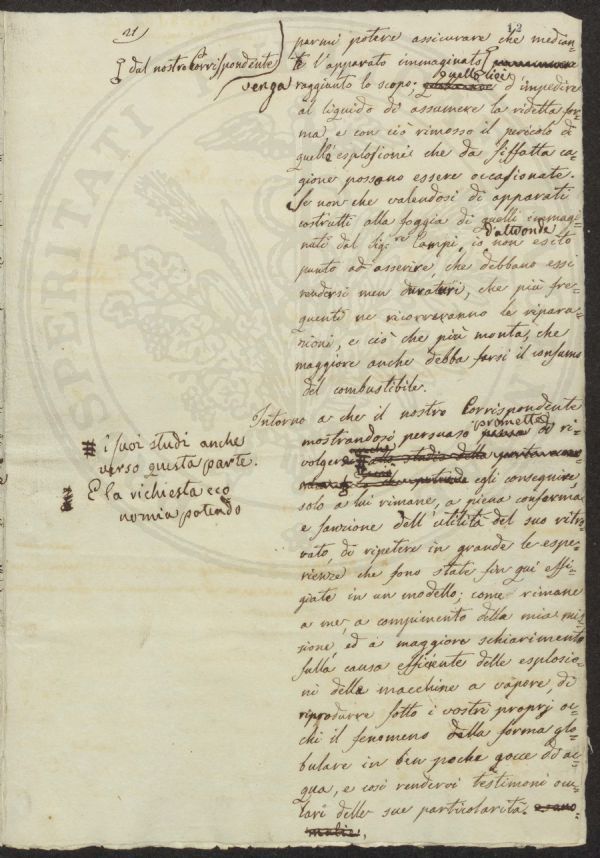 21
12
dal nostro Corrispondente
venga
parmi potere assicurare che median=
te l'apparato immaginato
raggiunto lo scopo, quello cioè d'impedire
al liquido di assumere la ridetta for=
ma, e con ciò rimosso il pericolo di
quelle esplosioni che da siffatta ca=
gione possano essere occasionate.
Se non che valendosi di apparati
costrutti alla foggia di quelli immagi=
nati dal Sig.re Campi, d'altronde io non esito
punto ad asserire, che debbano essi
rendersi men duraturi, che più fre=
quenti ne ricorreranno le ripara=
zioni, e ciò che più monta, che
maggiore anche debba farsi il consumo
del combustibile.
Intorno a che il nostro Corrispondente
mostrandosi persuaso promette di ri=
volgere
# i suoi studi anche
verso questa parte.
E la richiesta eco
nomia potendo
egli conseguire,
solo a lui rimane, a piena conferma
e sanzione dell'utilità del suo ritro=
vato, di ripetere in grande le espe=
rienze che sono state fin qui effi=
giate in un modello; come rimane
a me, a compimento della mia mis=
sione, ed a maggiore schiarimento
sulla causa efficiente delle esplosio=
ni delle macchine a vapore, di
riprodurre sotto i vostri proprj oc=
chi il fenomeno della forma glo=
bulare in ben poche gocce di ac=
qua, e così rendervi testimoni ocu=
lari delle sue particolarità.